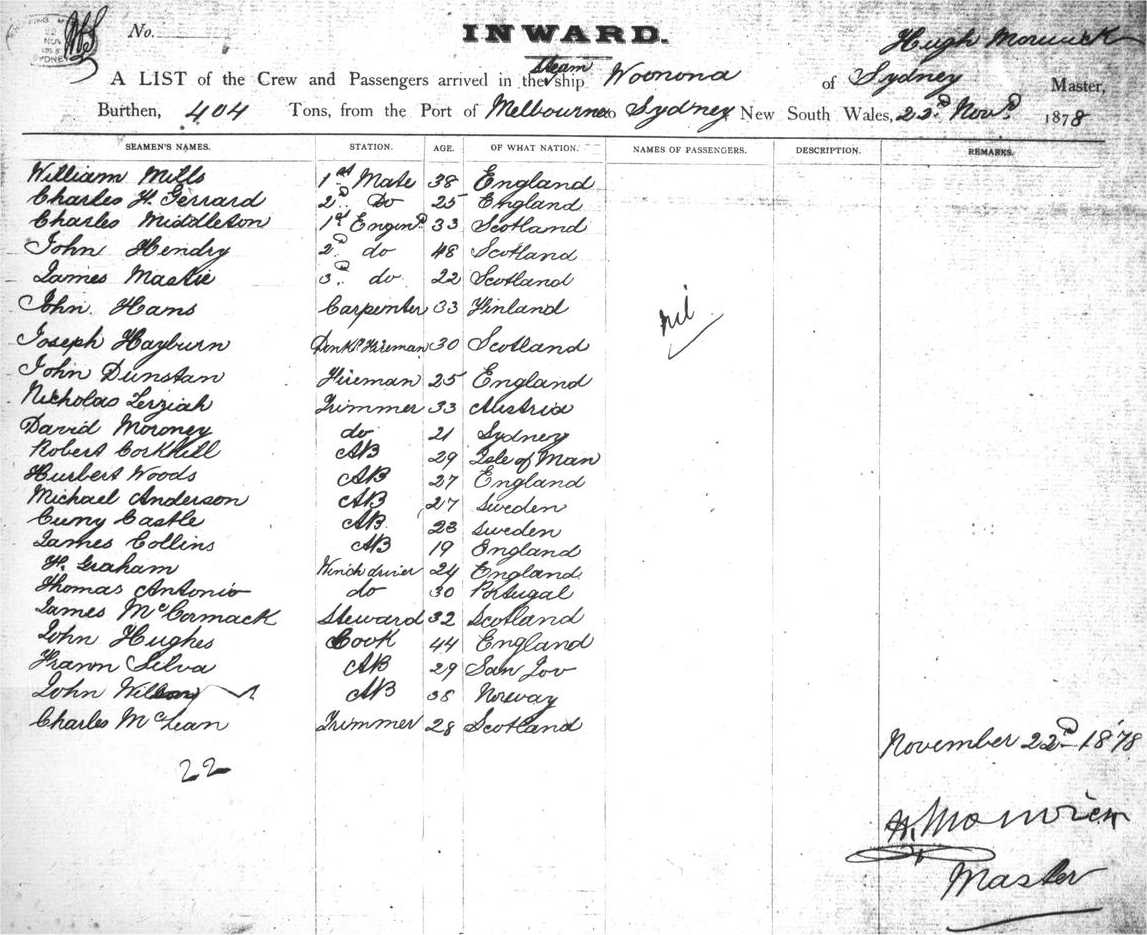 No.
INWARD.
Hugh Morwick
A LIST of the Crew and Passengers arrived in the Steam ship Woonona of Sydney Master,
Burthen, 404 Tons, from the Port of Melbourne to Sydney New South Wales, 22d Novr 1878
SEAMEN'S NAMES. STATION. AGE. OF WHAT NATION. NAMES OF PASSENGERS. DESCRIPTION. REMARKS.
William Mills 1st Mate 38 England
Charles H. Gerrard 2d Do 25 England
Charles Middleton 1st Enginr 33 Scotland
John Hendry 2d do 48 Scotland
James 3d do 22 Scotland
John Hans Carpenter 33 Finland
nil
Joseph Hayburn Fireman 30 Scotland
John Dunstan Fireman 25 England
Nicholas Trimmer 33 Austria
David Moroney do 21 Sydney
Robert Corkhill AB 29 Isle of Man
Hurbert Woods AB 27 England
Michael Anderson AB 27 Sweden
Cuny Castle AB 23 Sweden
James Collins AB 19 England
H. Graham Winch driver 24 England
Thomas Antonio do 30 Portugal
James McCormack Steward 32 Scotland
John Hughes Cook 44 England
Silva AB 29 San Jov
John AB 38 Norway
Charles McLean Trimmer 28 Scotland
22
November 22d 1878
H. Morwick
Master